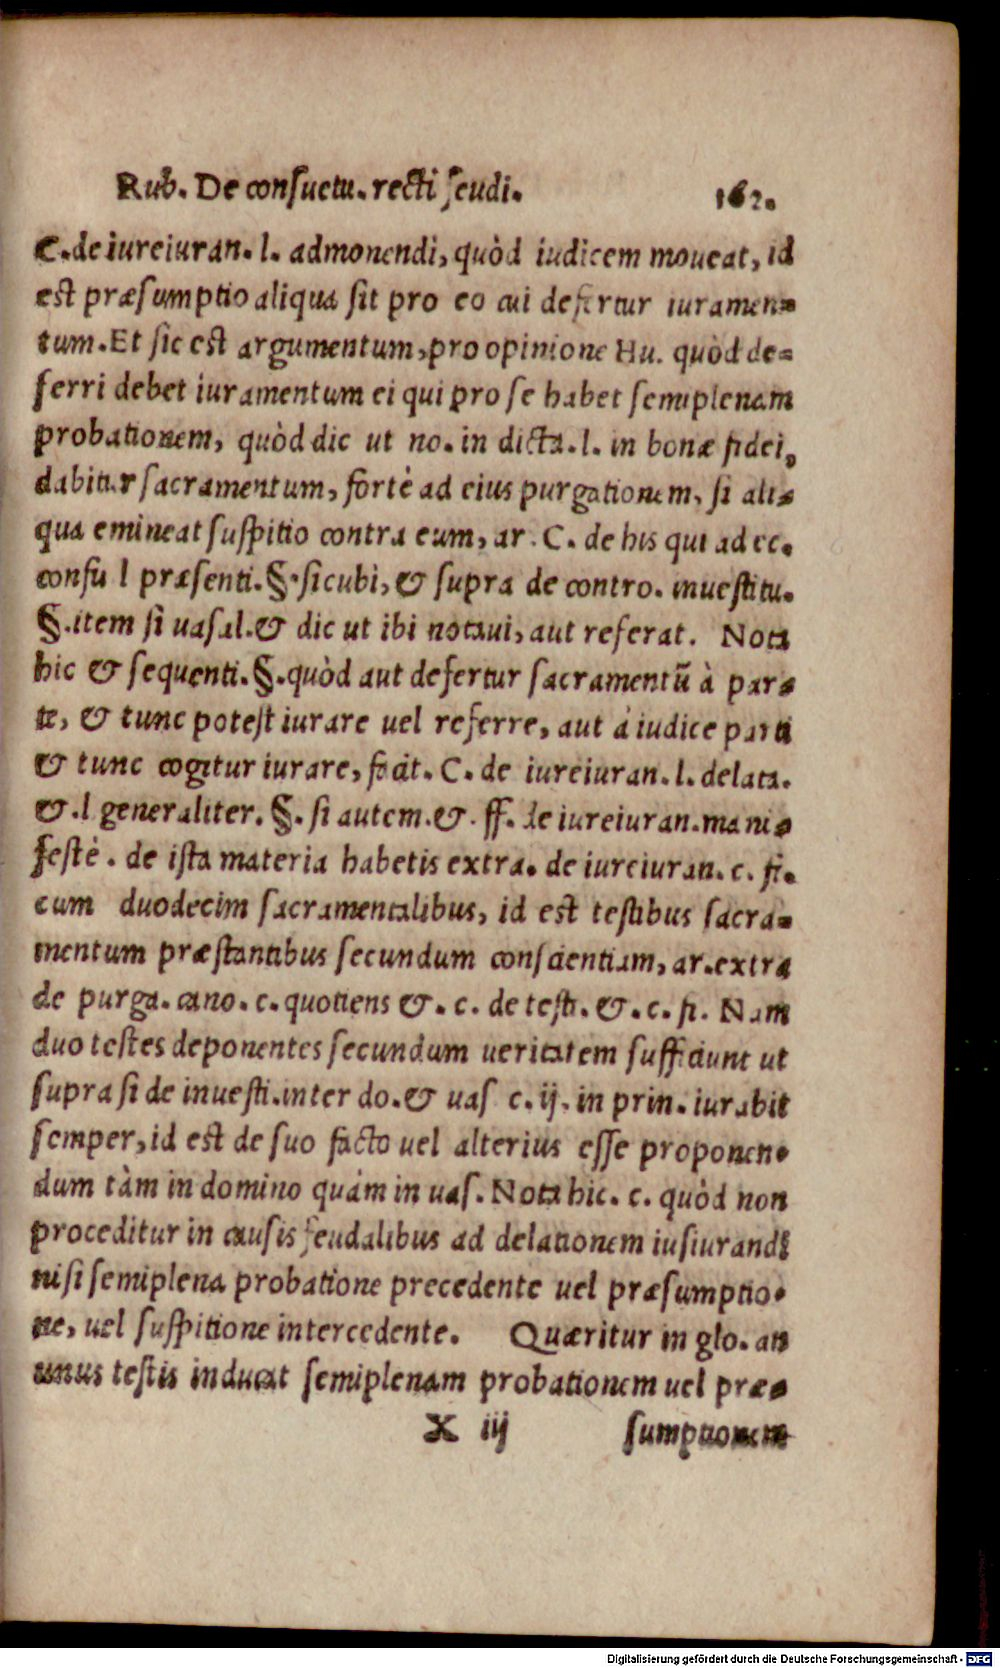 Rub. De consuetu. recti feudi. 162.
C. de iureiuran. l. admonendi, quòd iudicem moueat, id
est præsumptio aliqua sit pro eo cui defertur iuramen-
tum. Et sic est argumentum, pro opinione Hu. quòd de-
ferri debet iuramentum ei qui pro se habet semiplenam
probationem, quòd dic ut no. in dicta. l. in bonæ fidei,
dabitur sacramentum, fortè ad eius purgationem, si ali-
qua emineat suspitio contra eum, ar. C. de his qui ad ec.
confu l præsenti. §. sicubi, & supra de contro. inuestitu.
§. item si uasal. & dic ut ibi notaui, aut referat. Nota
hic & sequenti. §. quòd aut defertur sacramentũ à par-
te, & tunc potest iurare uel referre, aut à iudice parti
& tunc cogitur iurare, facit. C. de iureiuran. l. delata.
&. l generaliter. §. si autem. &. ff. de iureiuran. mani-
festè. de ista materia habetis extra. de iureiuran. c. fi.
cum duodecim sacramentalibus, id est testibus sacra-
mentum præstantibus secundum conscientiam, ar. extra
de purga. cano. c. quotiens &. c. de testi. &. c. fi. Nam
duo testes deponentes secundum ueritatem sufficiunt ut
supra si de inuesti. inter do. & uas c. ij. in prin. iurabit
semper, id est de suo facto uel alterius esse proponen-
dum tàm in domino quàm in uas. Nota hic. c. quòd non
proceditur in causis feudalibus ad delationem iusiurandi
nisi semiplena probatione precedente uel præsumptio-
ne, uel suspitione intercedente. Quæritur in glo. an
unus testis inducat semiplenam probationem uel præ-
X iij sumptionem
Digitalisierung gefördert durch die Deutsche Forschungsgemeinschaft - DFG